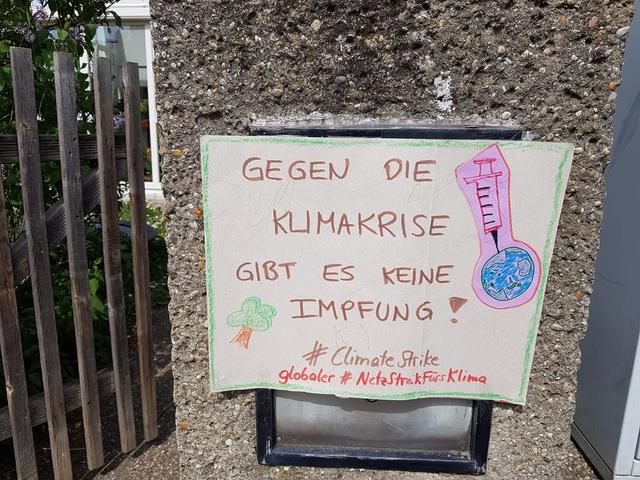 GEGEN DIE
KLIMAKRISE
GIBT ES KEINE
IMPFUNG!
#ClimateStrike
globaler #NetzStreikFürsKlima